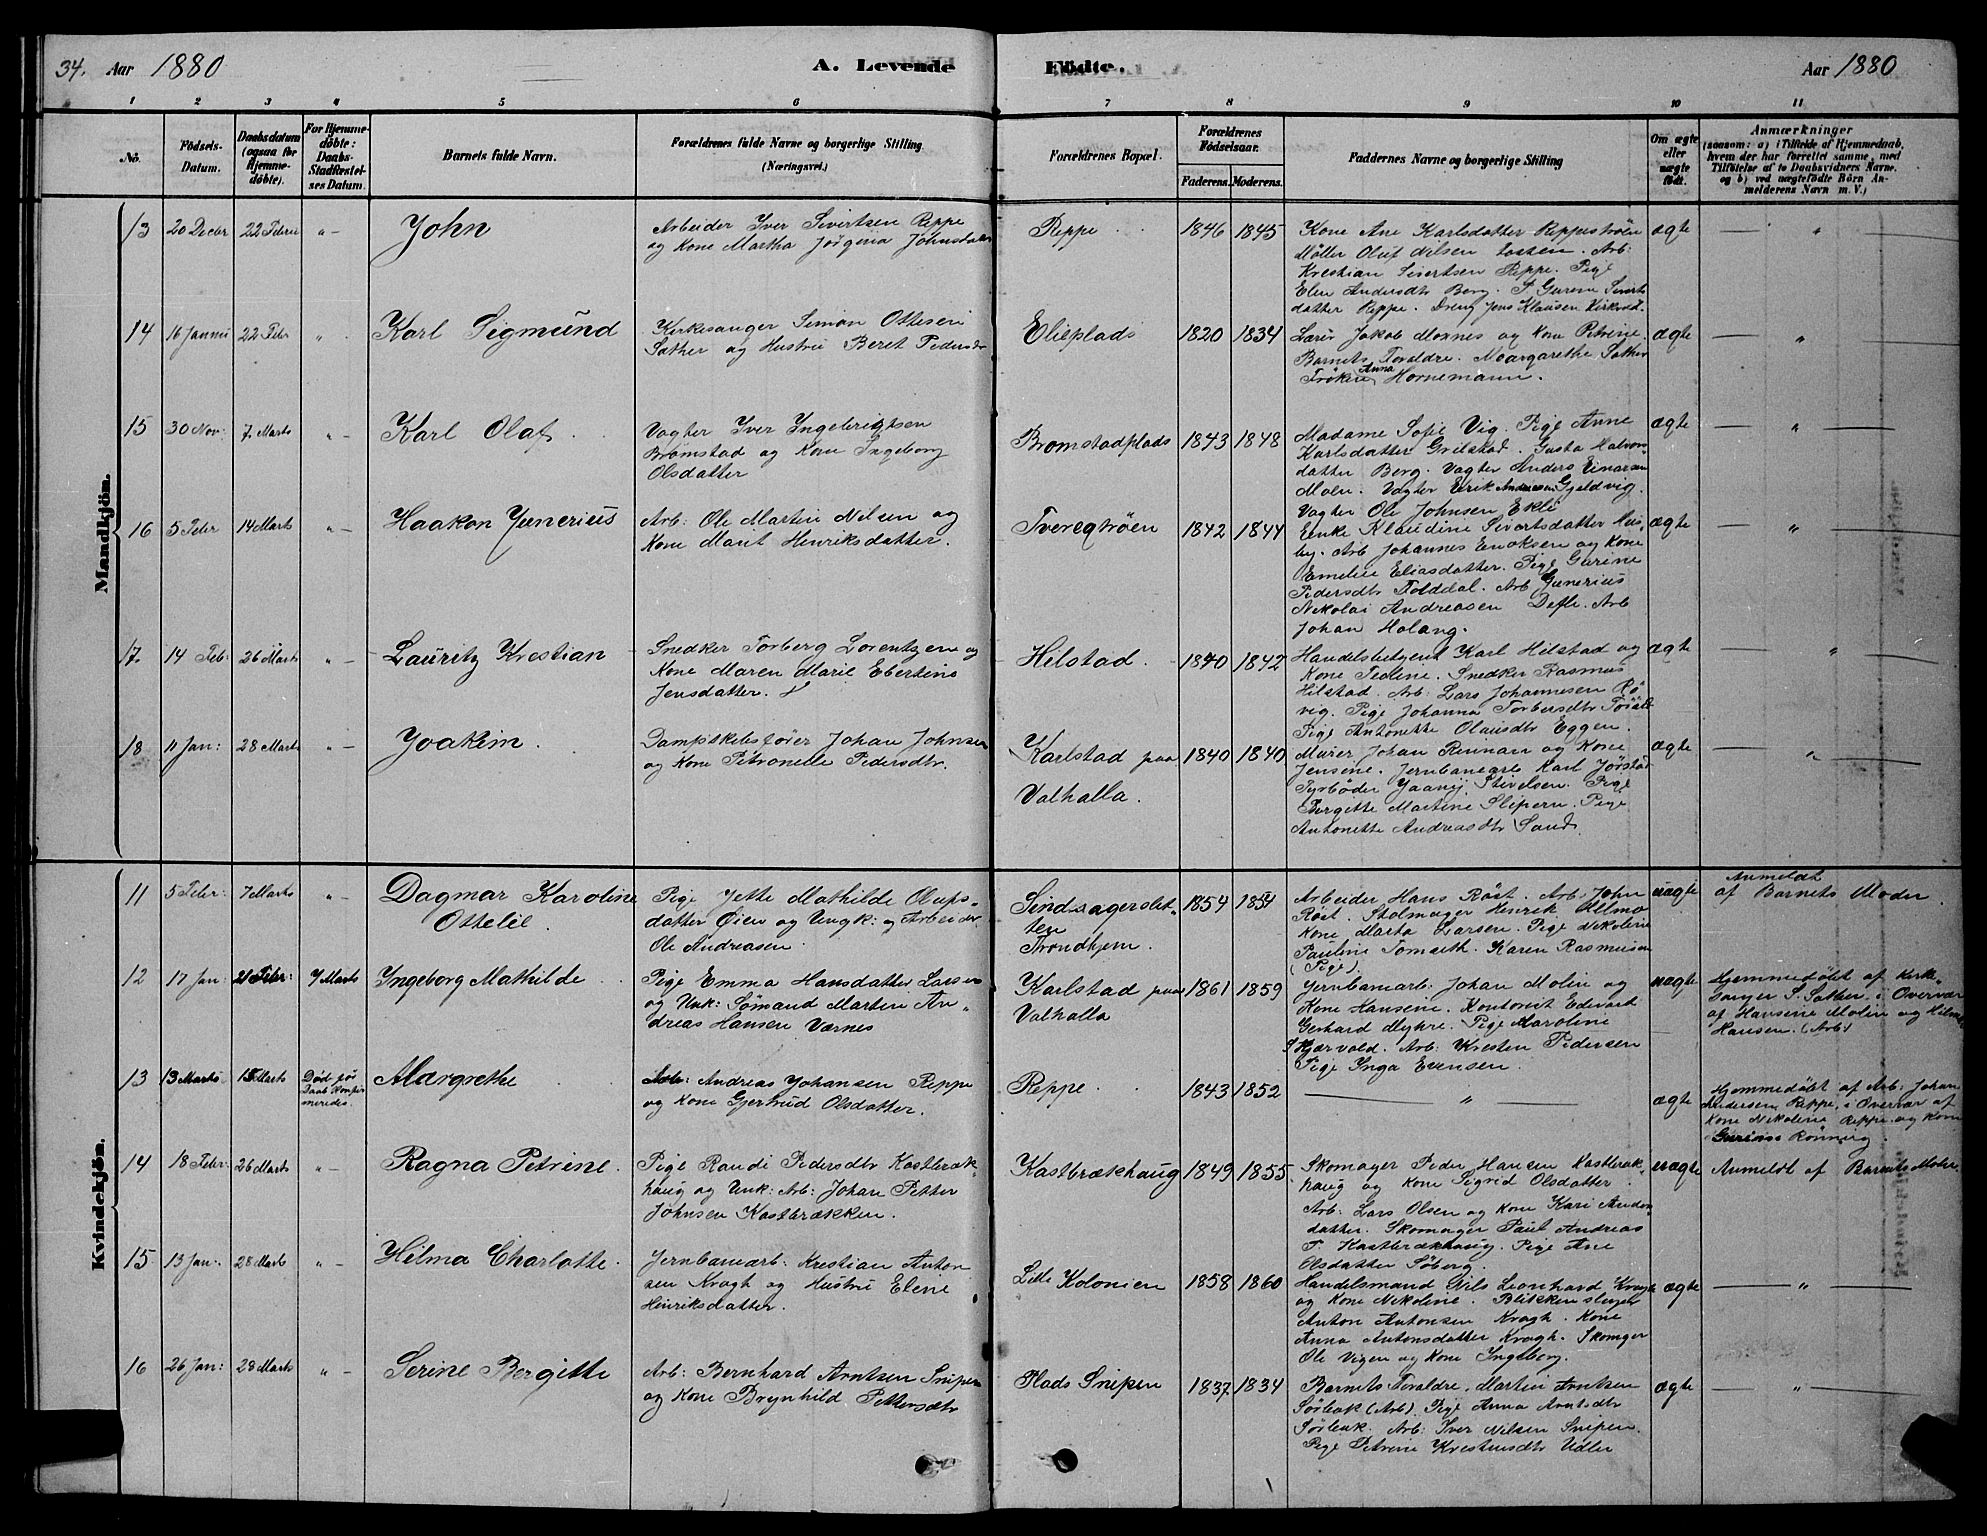 34. Aar 1880 A. Levende Födte. Aar 1880
1 2 3 4 5 6 7 8 9 10 11
No. Födsels-Datum. Daabsdatum (ogsaa for Hjemmedöbte). For Hjemmedöbte: Daabs-Stadfæstelses Datum. Barnets fulde Navn. Forældrenes fulde Navne og borgerlige Stilling. (Næringsvei.) Forældrenes Bopæl. Forældrenes Födselsaar. Faderens. Moderens. Faddernes Navne og borgerlige Stilling Om ægte eller uægte födt. Anmærkninger (saasom: a) i Tilfælde af Hjemmedaab, hvem der har forrettet samme, med Tilföielse af to Daabsvidners Navne, og b) ved uægtefödte Börn Anmelderens Navn m. V.)
Mandkjön.
13 20 Decbr 22 Febru " John
Arbeider Iver Sivertsen Reppe
og Kone Martha Jörgina Johnsdatter
Reppe 1846 1845
Kone Ane Karlsdatter Reppeströen
Möller Oluf Nilsen Arb:
Krestian Sivertsen Reppe. Pige
Elen Andersdtr Berg. P. Gurine Siverts
datter Reppe. Dreng Jens Klausen
ægte — " —
14 16 Januu 22 Febr " Karl Sigmund
Kirkesanger Simon Ottesen
Sather og Hustru Beret Pedersdtr
Elieplads 1820 1834
Lærer Jakob Mosnes og Kone Petrine
Barnets Foraldre. Margarethe Sather
Fröken Anna Hornemann.
ægte — " —
15 30 Nov: 7. Marts " Karl Olaf
Vagter Iver Ingebrigtsen
Bromstad og Kone Ingeborg
Olsdatter
Bromstadplads 1843 1848
Madame Sofie Vig. Pige Anne
Karlsdatter Grilstad. Gusta Halvors-
datter Berg. Vagter Anders Einarsen
Moen. Vagter Erik Andresen Gjeldvig.
Vagter Ole Johnsen Ekle
ægte — " —
16 5 Febr 14 Marts " Haakon Junerius
Arb: Ole Martin Nilsen og
Kone Marit Henriksdatter.
Tvereqtröen 1842 1844
Enke Klaudine Sivertsdatter Hus
by. Arb Johannes Enoksen og Kone
Emelie Eliasdatter. Pige Gurine
Pedersdtr Folddal. Arb Gunerius
Nikolai Andreasen Defle. Arb
Johan Holang.
ægte — " —
17. 14 Feb: 26 Marts " Lauritz Krestian
Snedker Torberg Lorentzen og
Kone Maren Marie Ebertine
Jensdatter.
Hilstad. 1840 1842
Handelsbetjent Karl Hilstad og
Kone Tedline. Snedker Rasmus
Hilstad. Arb: Lars Johannesen Rö
vig. Pige Johanna Torbersdtr
Pige Antonette Olausdtr Eggen.
ægte — " —
18 11 Jan: 28 Marts " Joakim.
Dampskibsförer Johan Johnsen
og Kone Petronelle Pedersdtr.
Karlstad paa
Valhalla. 1840 1840
Murer Johan Rennan og Kone
Jensine. Jernbanearb Karl Jörstad
Fyrböder Stivelsen. Pige
Bergette Martine Slipern. Pige
Antonette Andreasdtr Sand.
ægte — " —
Kvindekjön.
11 5 Febr: 7 Marts " Dagmar Karoline
Ottelie.
Pige Jette Mathilde Olufs-
datter Öien og Ungk: og Arbeider
Ole Andreasen.
Sindsagerslet-
ten
Trondhjem. 1854 1854
Arbeider Hans Röst. Arb: John
Röst. Skomager Henrik
Kone Marta Larsen. Pige Nikoline
Pauline Tomseth. Karen Rasmusen
(Pige).
uægte
Anmeldt
af Barnets Moder.
12 17 Jan: 21 Febr: 7 Marts Ingeborg Mathilde
Pige Emma Hansdatter Larsen
og Unk: Sömand Marten An
dreas Hansen Værnes
Karlstad paa
Valhalla 1861 1859
Jernbanearb: Johan Molin og
Kone Hansine. Kontorist Edvard
Gerhard Myhre. Pige Karoline
Skjærvold. Arb: Kresten Pedersen
Pige Inga Evensen.
uægte
Hjemmedöbt af Kirke
sanger S. Sather. i Overvær
af Hansine Molin og Hilma
Hansen. (Arb)
13 13 Marts 15 Marts Död för
Daab Konfir
meredes. Margrethe
Arb: Andreas Johansen Reppe
og Kone Gjertrud Olsdatter.
Reppe 1843 1852
— " —
ægte
Hjemmedöbt af Arb: Johan
Andersen Reppe, i Overvær af
Kone Nikoline Reppe og Kone
Gurine Rönnig.
14 18 Febr: 26 Marts " Ragna Petrine.
Pige Randi Pedersdtr Kastbræk-
haug og Unk: Arb: Johan Petter
Johnsen Kastbrækken.
Kastbrækhaug 1849 1855.
Skomager Peder Hansen Kastbræk-
haug og Kone Sigrid Olsdatter.
Arb: Lars Olsen og Kone Kari Anders
datter. Skomager Paul Andreas
P. Kastbrækhaug. Pige Ane
Olsdatter Söberg.
uægte
Anmeldt af Barnets Moder.
15 13 Jan: 28 Marts " Hilma Charlotte.
Jernbanearb: Krestian Anton
sen Kragh og Hustru Elene
Henriksdatter.
Lille Kolonien 1858 1860
Handelsmand Nils Leonhard Kragh
og Kone Nikoline. Blikkenslager
Anton Antonsen Kragh. Kone
Anna Antonsdatter Kragh. Skomager
Ole Vigen og Kone Ingeborg.
ægte — " —
16 26 Jan: 28 Marts " Serine Bergitte
Arb: Bernhard Arntsen Snipen
og Kone Brynhild Pettersdtr
Plads Snipen 1837 1834
Barnets Foraldre. Martin Arntsen
Sörleak (Arb). Pige Anna Arntsdtr
Sörleak. Arb: Iver Nilsen Snipen.
Pige Petrine
ægte — " —